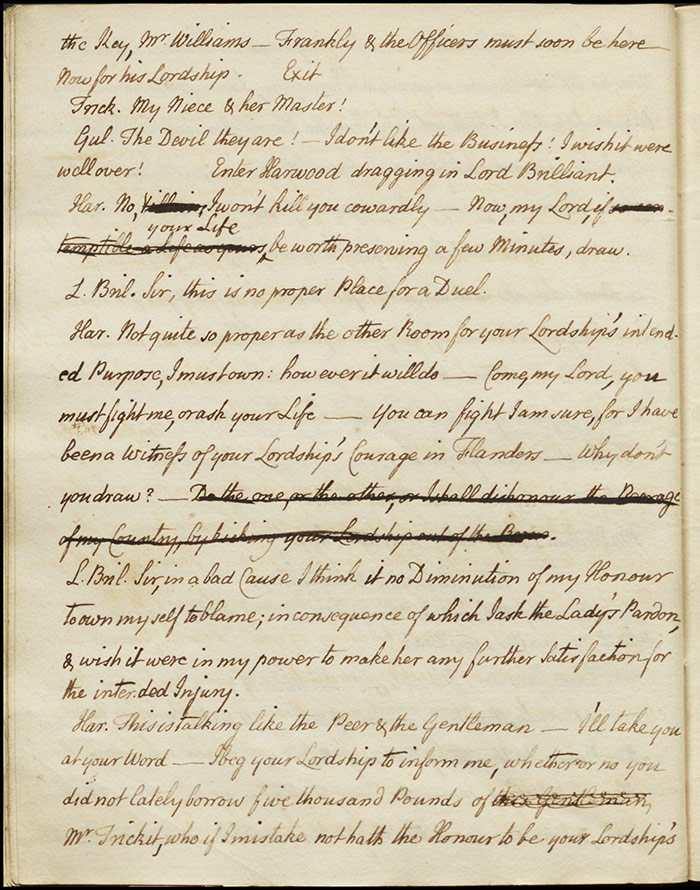 the Key, Mr. Williams — Frankly & the Officers must soon be here
Now for his Lordship. Exit
Trick. My Niece & her Master!
Gul. The Devil they are! — I don't like the Business! I wish it were
well over! Enter Harwood dragging in Lord Brilliant.
Har. No, Villain, I won't kill you cowardly — Now, my Lord, if so con-
your Life
temptible a Life as yours, be worth preserving a few Minutes, draw.
L. Bril. Sir, this is no proper Place for a Duel.
Har. Not quite so proper as the other Room for your Lordship's intend-
ed Purpose, I must own: however it will do — Come, my Lord, you
must fight me, or ask your Life — you can fight I am sure, for I have
been a Witness of your Lordship's Courage in Flanders — Why don't
you draw? — Do the one, or the other, or I shall dishonour the Peerage
of my Country, by kicking your Lordship out of the
L. Bril. Sir, in a bad Cause I think it no Diminution of my Honour
to own my self to blame; in consequence of which I ask the Lady's Pardon,
& wish it were in my power to make her any further Satisfaction for
the intended Injury.
Har. This is talking like the Peer & the Gentleman — I'll take you
at your Word — I beg your Lordship to inform me, whether or no you
did not lately borrow five thousand Pounds of this Gentleman,
Mr. Trickit, who if I mistake not hath the Honour to be your Lordship's